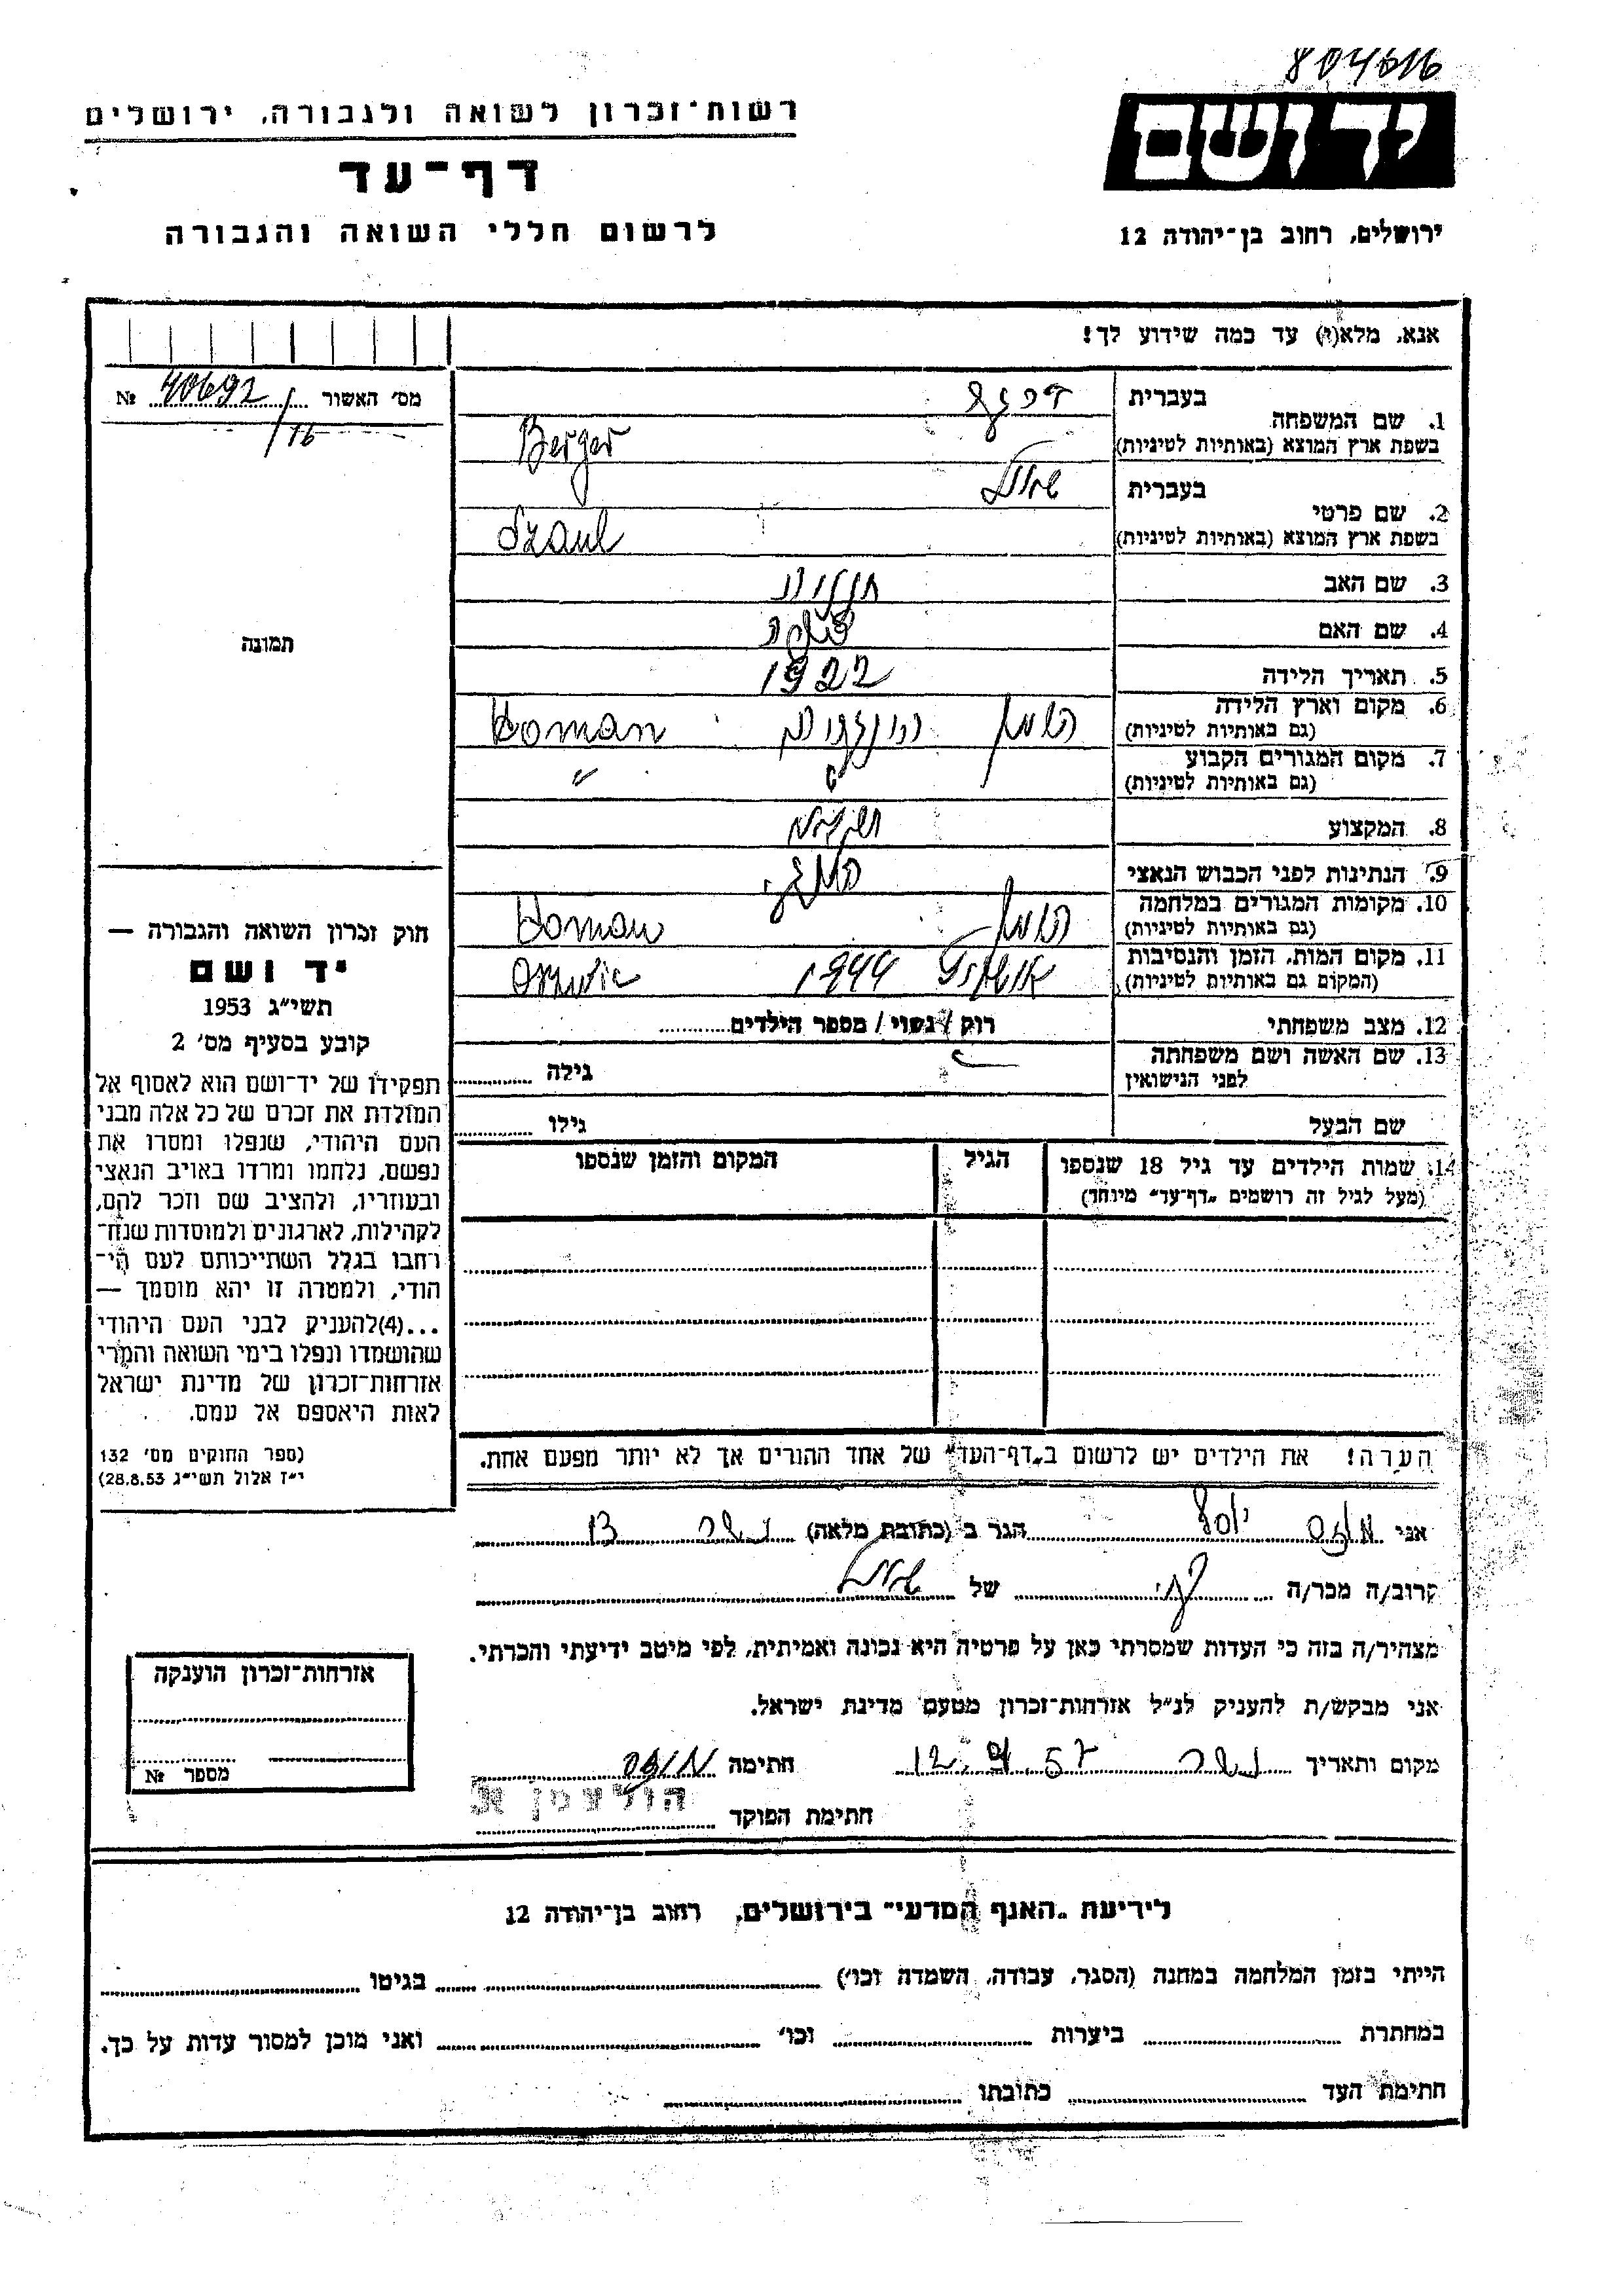 804616
רשות־זכרון לשואה ולגבורה, ירושלים
ידושם
דף־עד
לרשום חללי השואה והגבורה
ירושלים, רחוב בן־יהודה 12
אנא, מלא(י) עד כמה שידוע לך!
מס׳ האשור № 40692/16
בעברית
1. שם המשפחה
בשפת ארץ המוצא (באותיות לטיניות) Berger
בעברית שאול
2. שם פרטי
בשפת ארץ המוצא (באותיות לטיניות) Szaul
3. שם האב
4. שם האם
תמונה
5. תאריך הלידה 1922
6. מקום וארץ הלידה Homan
(גם באותיות לטיניות)
7. מקום המגורים הקבוע ״
(גם באותיות לטיניות)
8. המקצוע
9. הנתינות לפני הכבוש הנאצי
10. מקומות המגורים במלחמה Homan
(גם באותיות לטיניות)
11. מקום המות, הזמן והנסיבות 1944
(המקום גם באותיות לטיניות)
12. מצב משפחתי רוק / נשוי / מספר הילדים
13. שם האשה ושם משפחתה
לפני הנישואין גילה
שם הבעל גילו
14. שמות הילדים עד גיל 18 שנספו הגיל המקום והזמן שנספו
(מעל לגיל זה רושמים „דף־עד״ מיוחד)
הערה! את הילדים יש לרשום ב„דף־העד״ של אחד ההורים אך לא יותר מפעם אחת.
חוק זכרון השואה והגבורה —
יד ושם
תשי״ג 1953
קובע בסעיף מס׳ 2
תפקידו של יד־ושם הוא לאסוף אל
המולדת את זכרם של כל אלה מבני
העם היהודי, שנפלו ומסרו את
נפשם, נלחמו ומרדו באויב הנאצי
ובעוזריו, ולהציב שם וזכר להם,
לקהילות, לארגונים ולמוסדות שנח־
רחבו בגלל השתייכותם לעם הי־
הודי, ולמטרה זו יהא מוסמך —
...(4)להעניק לבני העם היהודי
שהושמדו ונפלו בימי השואה והמרי
אזרחות־זכרון של מדינת ישראל
לאות היאספם אל עמם.
(ספר החוקים מס׳ 132
י״ז אלול תשי״ג 28.8.53)
אני יוסף הגר ב (כתובת מלאה) 13
קרוב/ה מכר/ה של שאול
מצהיר/ה בזה כי העדות שמסרתי כאן על פרטיה היא נכונה ואמיתית, לפי מיטב ידיעתי והכרתי.
אני מבקש/ת להעניק לנ״ל אזרחות־זכרון מטעם מדינת ישראל.
מקום ותאריך 12.9.57 חתימה
חתימת הפוקד הולצמן א
אזרחות־זכרון הוענקה
מספר №
לידיעת „האגף המדעי״ בירושלים, רחוב בן־יהודה 12
הייתי בזמן המלחמה במחנה (הסגר, עבודה, השמדה וכו׳) בגיטו
במחתרת ביערות וכו׳ ואני מוכן למסור עדות על כך.
חתימת העד כתובתו